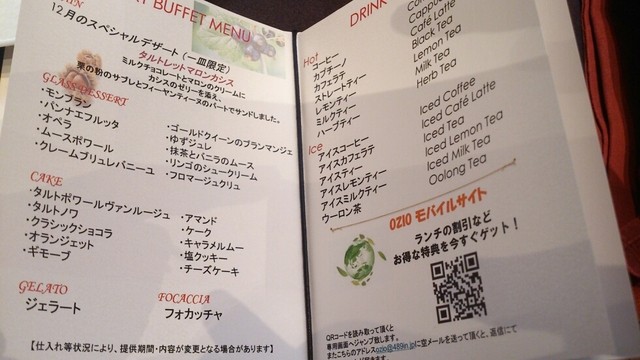 BUFFET MENU
12月のスペシャルデザート(一皿限定)
タルトレットマロンカシス
ミルクチョコレートとマロンのクリームに
カシスのゼリーを添え、
栗の粉のサブレとフィーヤンティーヌのパートでサンドしました。
GLASS DESSERT
・モンブラン
・パンナエフルッタ
・オペラ
・ムースポワール
・クレームブリュレバニーユ
・ゴールドクイーンのブランマンジェ
・ゆずジュレ
・抹茶とバニラのムース
・リンゴのシュークリーム
・フロマージュクリュ
CAKE
・タルトポワールヴァンルージュ
・タルトノワ
・クラシックショコラ
・オランジェット
・ギモーブ
・アマンド
・ケーク
・キャラメルムー
・塩クッキー
・チーズケーキ
GELATO
ジェラート
FOCACCIA
フォカッチャ
【仕入れ等状況により、提供期間・内容が変更となる場合があります】
DRINK
Hot
コーヒー
カプチーノ
カフェラテ
ストレートティー
レモンティー
ミルクティー
ハーブティー
Café Latte
Black Tea
Lemon Tea
Milk Tea
Herb Tea
Ice
アイスコーヒー
アイスカフェラテ
アイスティー
アイスレモンティー
アイスミルクティー
ウーロン茶
Iced Coffee
Iced Café Latte
Iced Tea
Iced Lemon Tea
Iced Milk Tea
Oolong Tea
OZIO モバイルサイト
ランチの割引など
お得な特典を今すぐゲット！
QRコードを読み取って頂くと
専用画面へジャンプ致します。
またこちらのアドレスozio@489in.jpに空メールを送って頂くと、返信にて